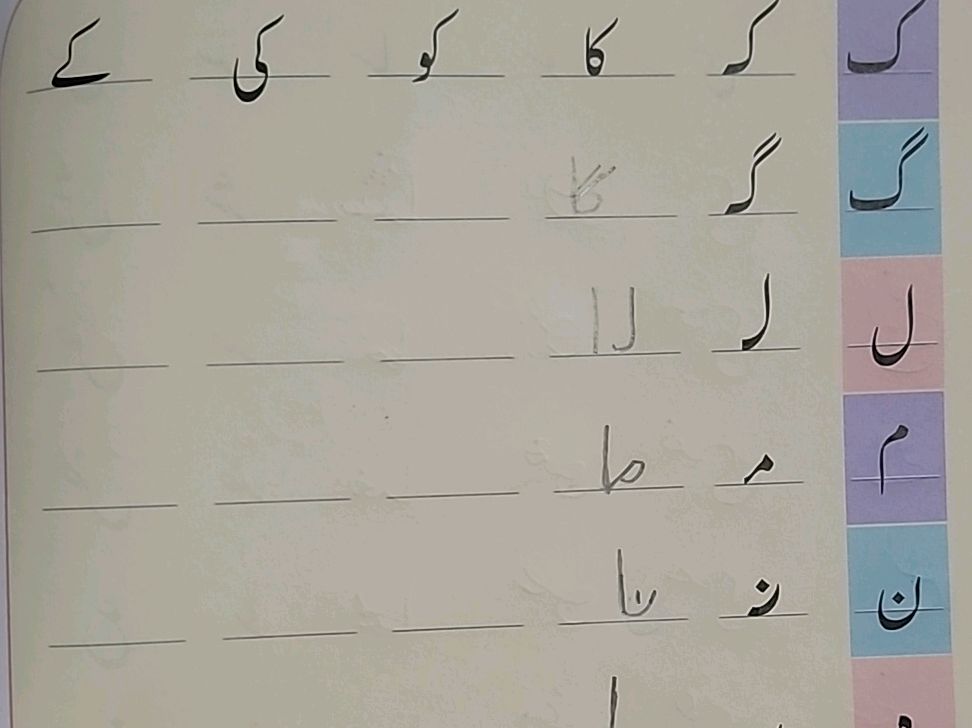 ک کـ کا کو کی کے
گ گـ گا
ل لـ لا
م مـ ما
ن نـ نا